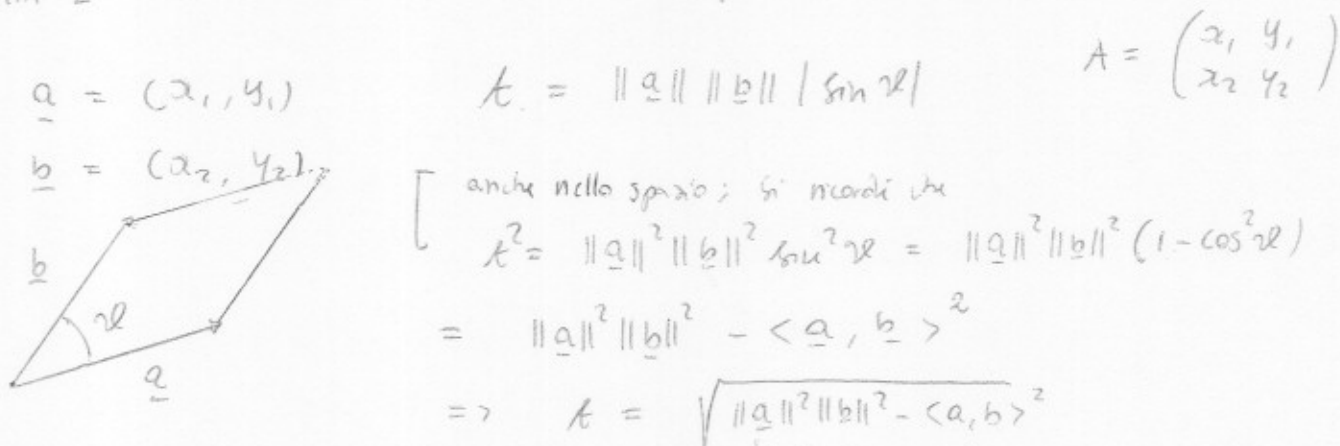 a = (x₁, y₁)
b = (x₂, y₂)
A = ||a|| ||b|| |sin ϑ|
A = (x₁ y₁
x₂ y₂)
anche nello spazio; si ricordi che
A² = ||a||² ||b||² sin²ϑ = ||a||² ||b||² (1 - cos²ϑ)
= ||a||² ||b||² - <a, b>²
=> A = √||a||² ||b||² - <a, b>²
b
ϑ
a